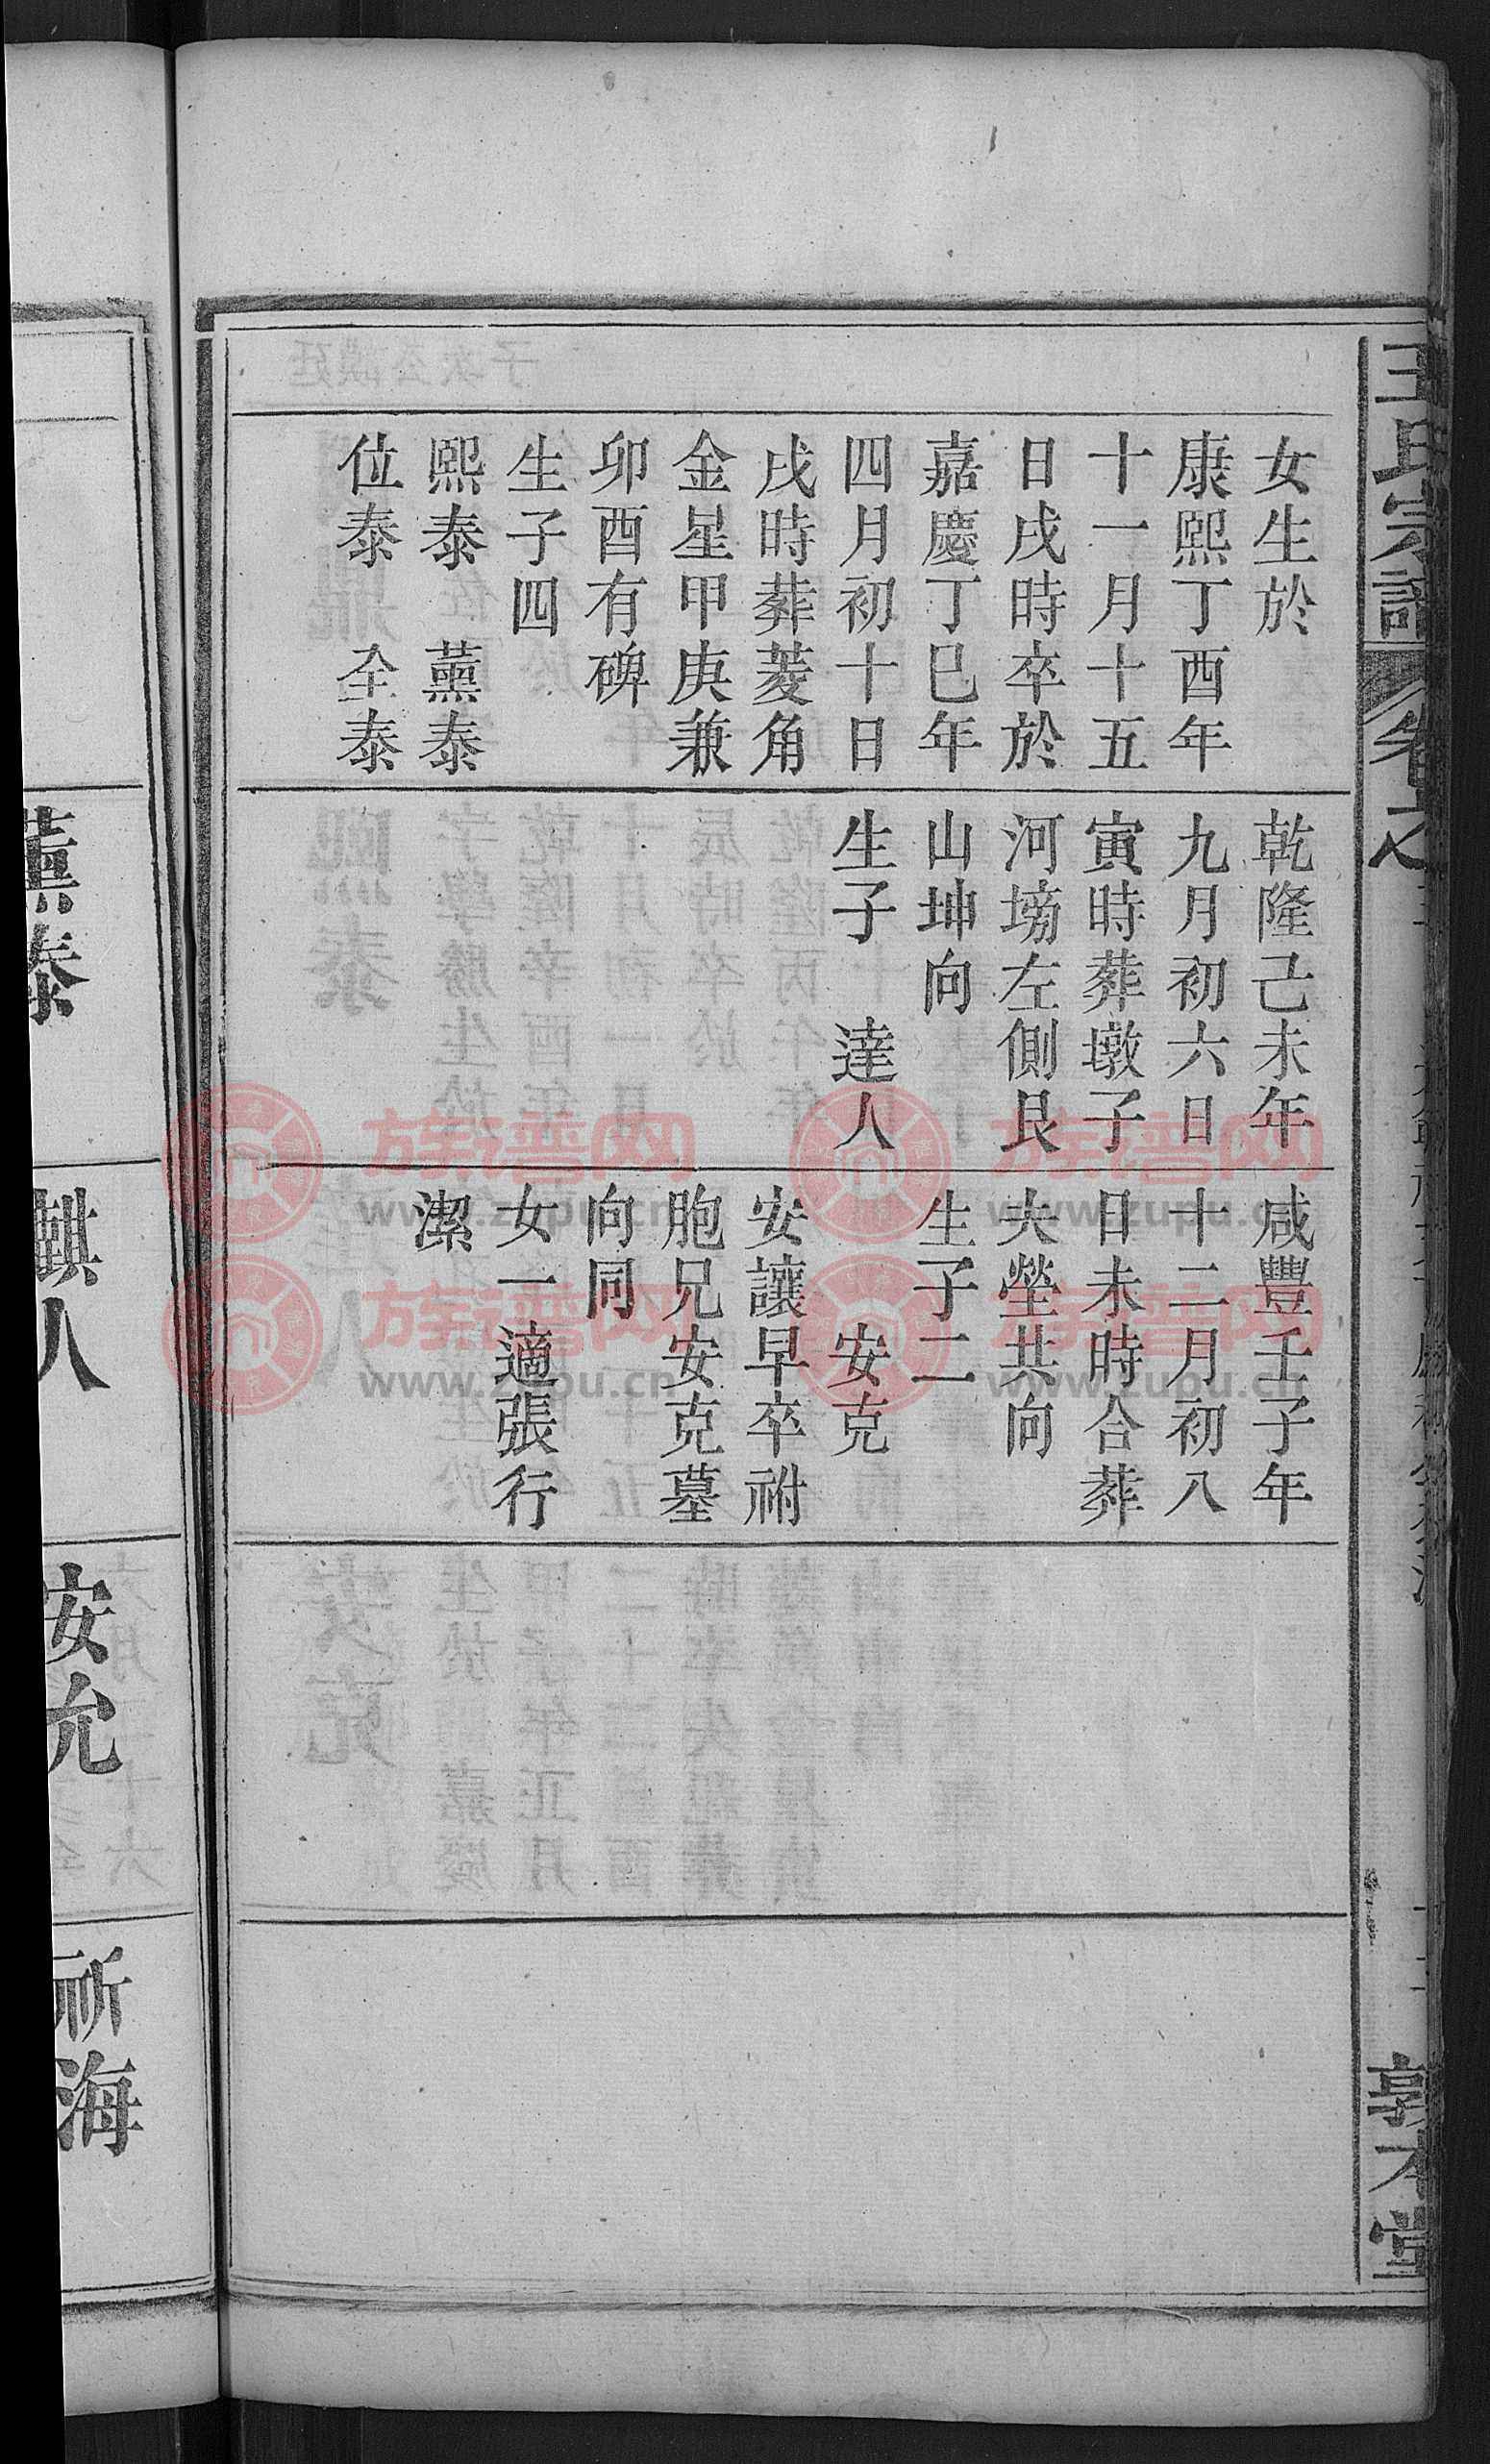 王氏宗譜
女生於
康熙丁酉年
十一月十五
日戌時卒於
嘉慶丁巳年
四月初十日
戌時葬菱角
金星甲庚兼
卯酉有碑
生子四
熙泰 薰泰
位泰 全泰
乾隆己未年
九月初六日
寅時葬墩子
河塝左側艮
山坤向
生子 達人
咸豐壬子年
十二月初八
日未時合葬
大塋共向
生子二
安克
安讓早卒祔
胞兄安克墓
向同
女一適張行
潔
薰泰
麒人
安允
祈海
族谱网 www.zupu.cn
族谱网 www.zupu.cn
族谱网 www.zupu.cn
族谱网 www.zupu.cn